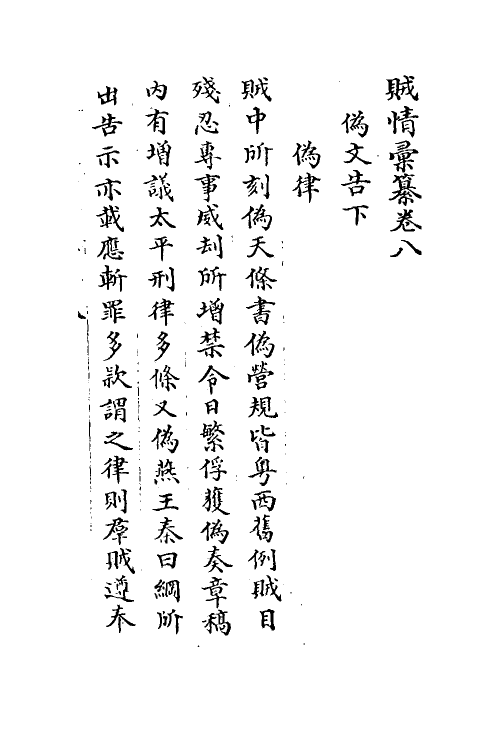 賊情彙纂卷八
偽文告下
偽律
賊中所刻偽天條書偽營規皆粤西舊例賊目
殘忍專事威刦所增禁令日繁俘獲偽奏章稿
內有增議太平刑律多條又偽燕王秦曰綱所
出告示亦載應斬罪多款謂之律則羣賊遵奉